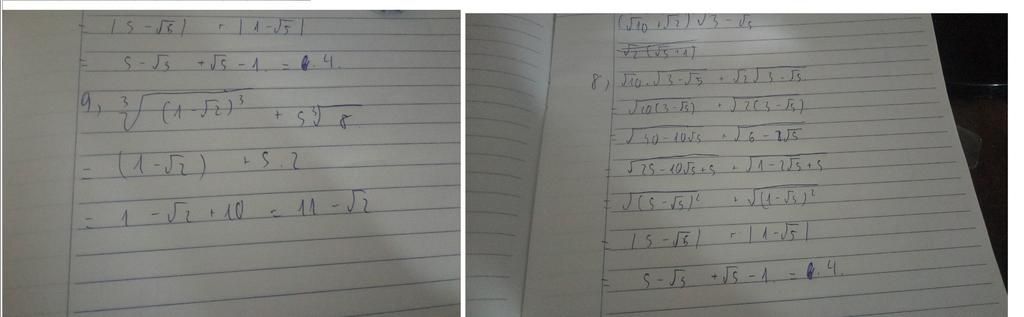 = |5-√5| + |1-√5|
= 5-√5 +√5-1 = 4.
9, ∛(1-√2)³ + 5∛8
= (1-√2) + 5.2
= 1 -√2 +10 = 11 -√2
(√10 +√2) √3-√5
√2 (√5+1)
8, √10.√3-√5 + √2√3-√5
= √10(3-√5) + √2(3-√5)
= √30-10√5 + √6-2√5
= √25-10√5+5 + √1-2√5+5
= √(5-√5)² + √(1-√5)²
= |5-√5| + |1-√5|
= 5-√5 +√5-1 = 4.